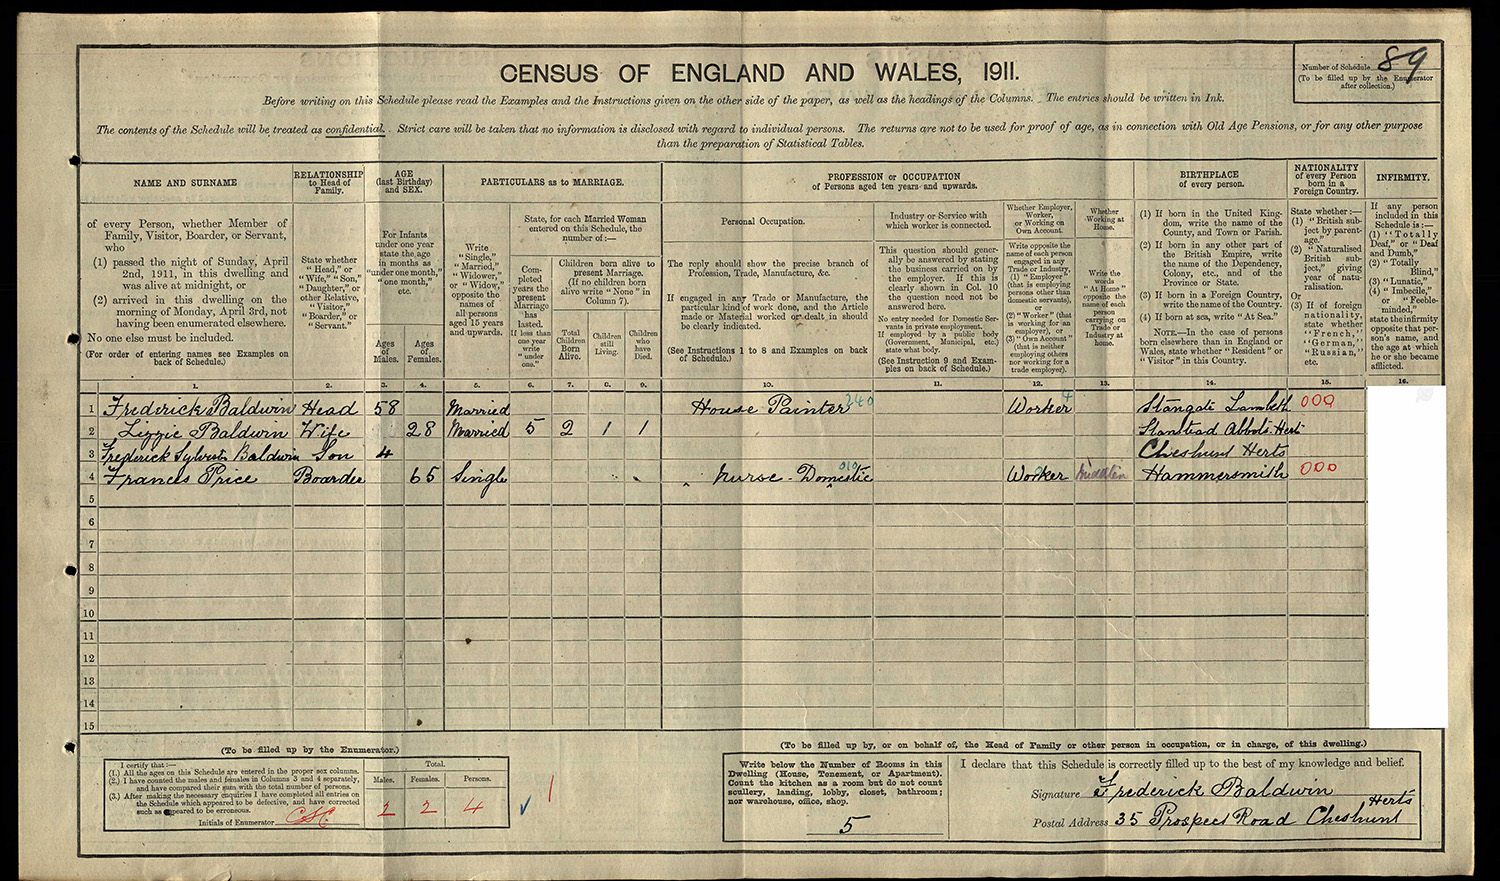 CENSUS OF ENGLAND AND WALES, 1911.
Number of Schedule 89
(To be filled up by the Enumerator
after collection.)
Before writing on this Schedule please read the Examples and the Instructions given on the other side of the paper, as well as the headings of the Columns. The entries should be written in Ink.
The contents of the Schedule will be treated as confidential. Strict care will be taken that no information is disclosed with regard to individual persons. The returns are not to be used for proof of age, as in connection with Old Age Pensions, or for any other purpose
than the preparation of Statistical Tables.
NAME AND SURNAME
of every Person, whether Member of
Family, Visitor, Boarder, or Servant,
who
(1) passed the night of Sunday, April
2nd, 1911, in this dwelling and
was alive at midnight, or
(2) arrived in this dwelling on the
morning of Monday, April 3rd, not
having been enumerated elsewhere.
No one else must be included.
(For order of entering names see Examples on
back of Schedule.)
RELATIONSHIP
to Head of
Family.
State whether
"Head," or
"Wife," "Son,"
"Daughter," or
other Relative,
"Visitor,"
"Boarder," or
"Servant."
AGE
(last Birthday)
and SEX.
For Infants
under one year
state the age
in months as
"under one month,"
"one month,"
etc.
Ages
of
Males.
Ages
of
Females.
PARTICULARS as to MARRIAGE.
Write
"Single,"
"Married,"
"Widower,"
or "Widow,"
opposite the
names of
all persons
aged 15 years
and upwards.
State, for each Married Woman
entered on this Schedule, the
number of:—
Com-
pleted
years the
present
Marriage
has
lasted.
If less than
one year
write
"under
one."
Children born alive to
present Marriage.
(If no children born
alive write "None" in
Column 7).
Total
Children
Born
Alive.
Children
still
Living.
Children
who
have
Died.
PROFESSION or OCCUPATION
of Persons aged ten years and upwards.
Personal Occupation.
The reply should show the precise branch of
Profession, Trade, Manufacture, &c.
If engaged in any Trade or Manufacture, the
particular kind of work done, and the Article
made or Material worked or dealt in should
be clearly indicated.
(See Instructions 1 to 8 and Examples on back
of Schedule.)
Industry or Service with
which worker is connected.
This question should gener-
ally be answered by stating
the business carried on by
the employer. If this is
clearly shown in Col. 10
the question need not be
answered here.
No entry needed for Domestic Ser-
vants in private employment.
If employed by a public body
(Government, Municipal, etc.)
state what body.
(See Instruction 9 and Exam-
ples on back of Schedule.)
Whether Employer,
Worker,
or Working on
Own Account.
Write opposite the
name of each person
engaged in any
Trade or Industry,
(1) "Employer"
(that is employing
persons other than
domestic servants),
or
(2) "Worker" (that
is working for an
employer), or
(3) "Own Account"
(that is neither
employing others
nor working for a
trade employer).
Whether
Working at
Home.
Write the
words
"At Home"
opposite the
name of each
person
carrying on
Trade or
Industry at
home.
BIRTHPLACE
of every person.
(1) If born in the United King-
dom, write the name of the
County, and Town or Parish.
(2) If born in any other part of
the British Empire, write
the name of the Dependency,
Colony, etc., and of the
Province or State.
(3) If born in a Foreign Country,
write the name of the Country.
(4) If born at sea, write "At Sea."
NOTE.—In the case of persons
born elsewhere than in England or
Wales, state whether "Resident" or
"Visitor" in this Country.
NATIONALITY
of every Person
born in a
Foreign Country.
State whether:—
(1) "British sub-
ject by parent-
age."
(2) "Naturalised
British sub-
ject," giving
year of natu-
ralisation.
Or
(3) If of foreign
nationality,
state whether
"French,"
"German,"
"Russian,"
etc.
INFIRMITY.
If any person
included in this
Schedule is:—
(1) "Totally
Deaf," or "Deaf
and Dumb,"
(2) "Totally
Blind,"
(3) "Lunatic,"
(4) "Imbecile,"
or "Feeble-
minded,"
state the infirmity
opposite that per-
son's name, and
the age at which
he or she became
afflicted.
1. 2. 3. 4. 5. 6. 7. 8. 9. 10. 11. 12. 13. 14. 15. 16.
1 Frederick Baldwin Head 58 Married House Painter 240 Worker 4 Stangate Lambeth 000
2 Lizzie Baldwin Wife 28 Married 5 2 1 1 Stanstead Abbots. Herts
3 Frederick Sylvester Baldwin Son 4 Cheshunt Herts
4 Frances Price Boarder 65 Single Nurse - Domestic 010 Worker Hammersmith 000
5
6
7
8
9
10
11
12
13
14
15
(To be filled up by the Enumerator.)
I certify that:—
(1.) All the ages on this Schedule are entered in the proper sex columns.
(2.) I have counted the males and females in Columns 3 and 4 separately,
and have compared their sum with the total number of persons.
(3.) After making the necessary enquiries I have completed all entries on
the Schedule which appeared to be defective, and have corrected
such as appeared to be erroneous.
Initials of Enumerator
Total.
Males. Females. Persons.
2 2 4
(To be filled up by, or on behalf of, the Head of Family or other person in occupation, or in charge, of this dwelling.)
Write below the Number of Rooms in this
Dwelling (House, Tenement, or Apartment).
Count the kitchen as a room but do not count
scullery, landing, lobby, closet, bathroom;
nor warehouse, office, shop.
5
I declare that this Schedule is correctly filled up to the best of my knowledge and belief.
Signature Frederick Baldwin
Postal Address 35 Prospect Road Cheshunt Herts